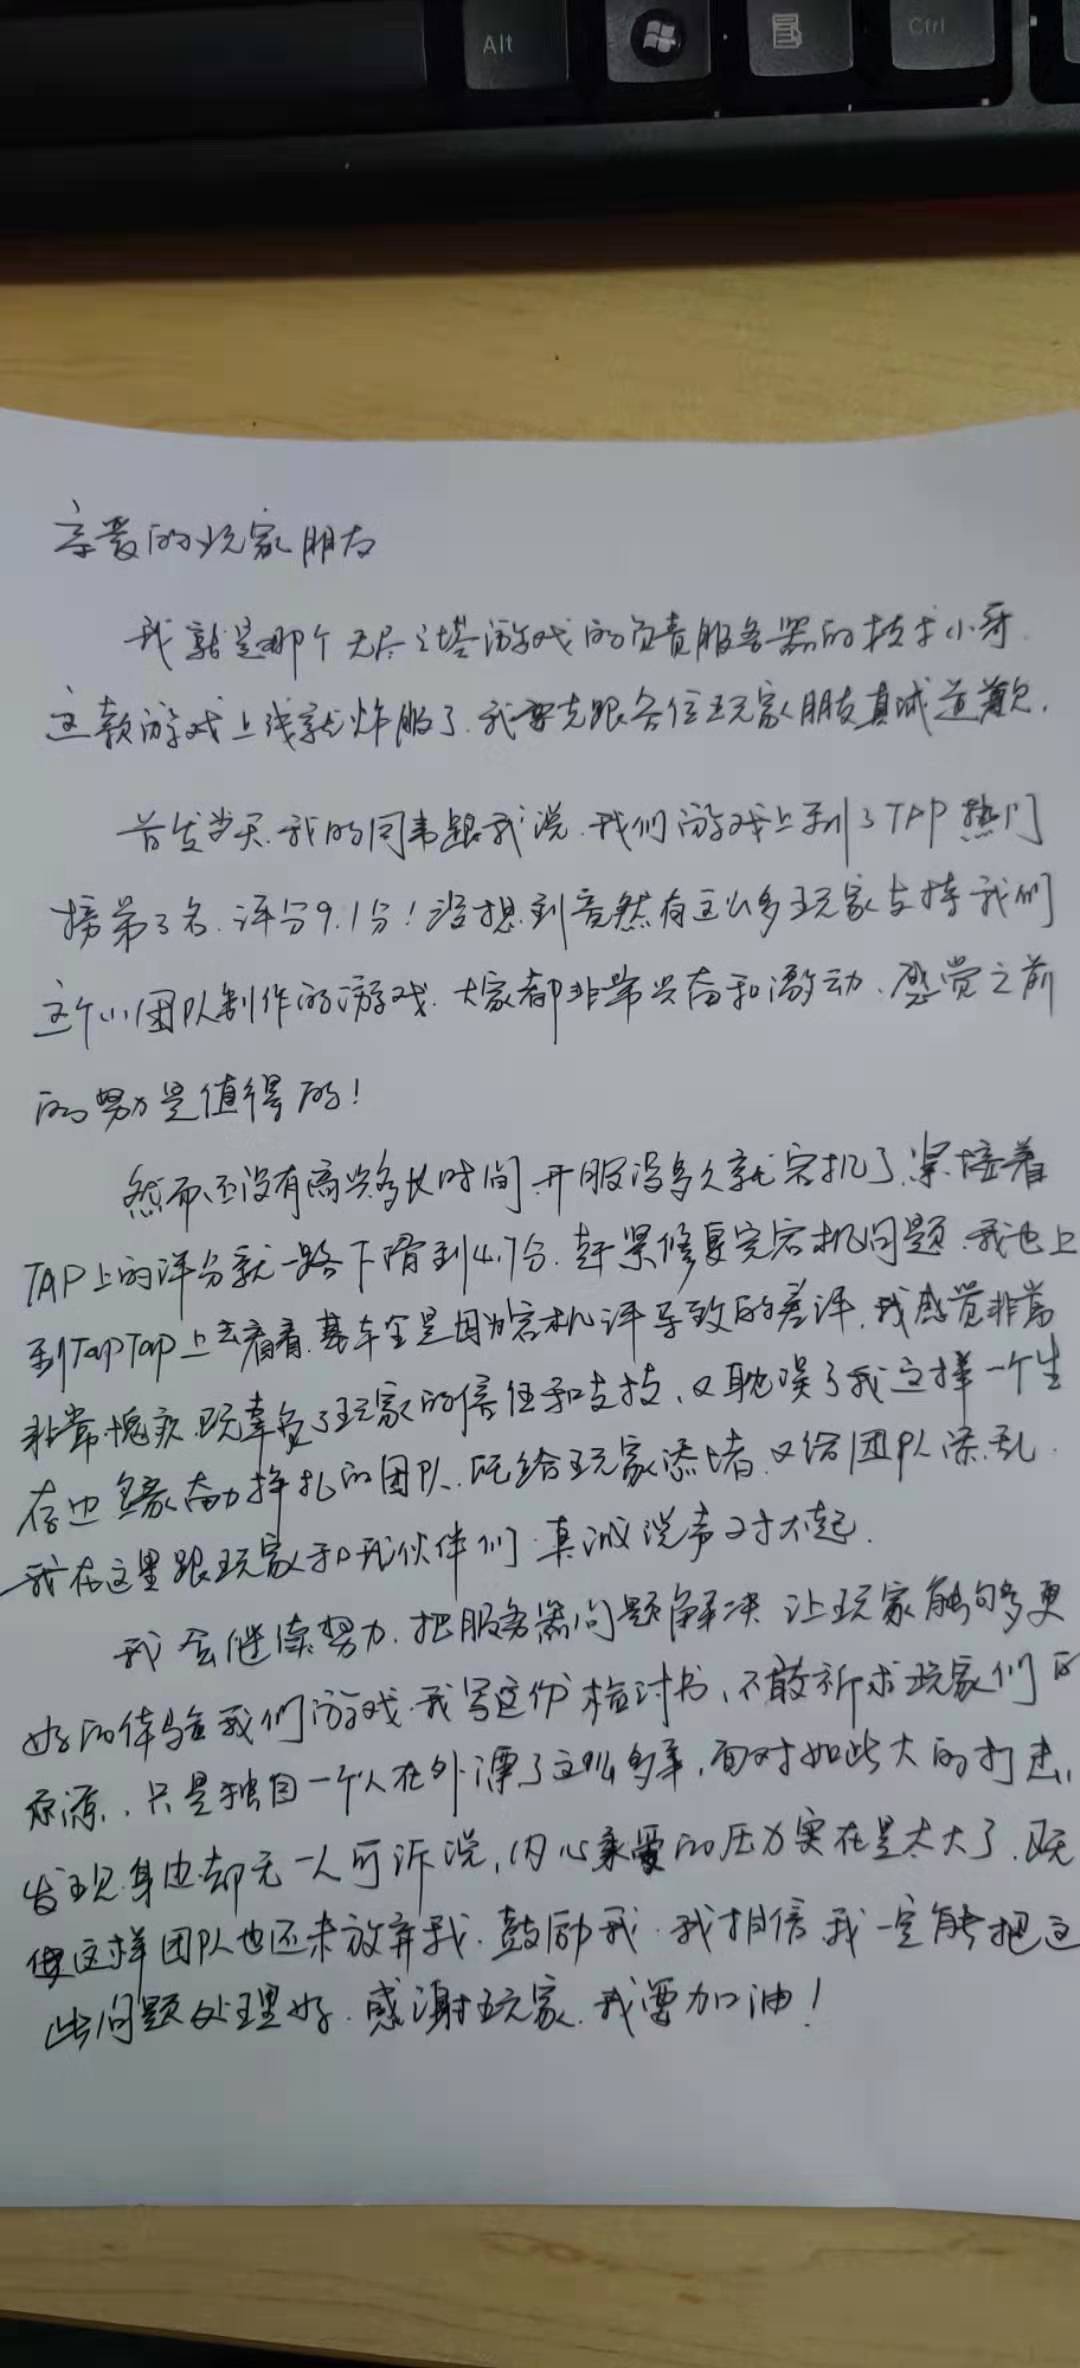 Alt
Ctrl
亲爱的玩家朋友
我就是那个无尽之塔游戏的负责服务器的技术小哥.
这款游戏上线就炸服了.我要先跟各位玩家朋友真诚道歉.
首发当天.我的同事跟我说.我们游戏上到了TAP热门
榜第3名.评分9.1分!没想到竟然有这么多玩家支持我们
这个小团队制作的游戏.大家都非常兴奋和激动、感觉之前
的努力是值得的!
然而还没有高兴多长时间.开服没多久就宕机了.紧接着
TAP上的评分就一路下滑到4.7分.赶紧修复完宕机问题.我也上
到TapTap上去看看.基本全是因为宕机评导致的差评.我感觉非常
非常愧疚.既辜负了玩家的信任和支持、又耽误了我这样一个生
存边缘奋力挣扎的团队.既给玩家添堵.又给团队添乱.
我在这里跟玩家和我伙伴们.真诚说声对不起.
我会继续努力.把服务器问题解决 让玩家能够多更
好的体验我们游戏.我写这份检讨书、不敢祈求玩家们的
原谅.只是独自一个人在外漂了这么多年,面对如此大的打击,
发现身边却无一人可诉说,内心承受的压力实在是太大了.既
使这样团队也还未放弃我.鼓励我.我相信我一定能把这
些问题处理好.感谢玩家.我要加油!